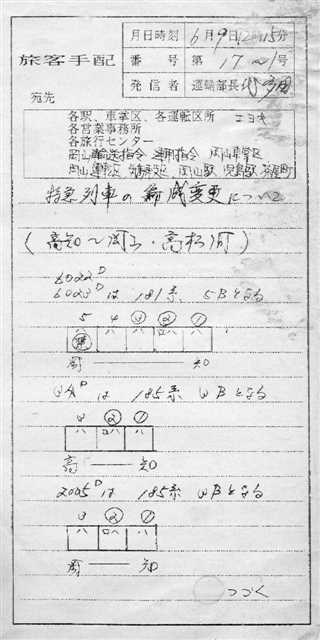 旅客手配
月日時刻 6月9日12時15分
番号 第17〜1号
発信者 運輸部長
宛先
各駅、車掌区、各運転区所
各営業事務所
各旅行センター
岡山輸送指令 運用指令 岡山車掌区
特急列車の編成変更について
(高知〜岡山・高松間)
6022D
6023Dは 181系、5Bとなる
5 4 ③ ② ①
ハ ハ ハ ロハ ハ
岡 知
34Dは 185系 3Bとなる
3 ② ①
ハ ロハ ハ
高 知
2005Dは 185系 3Bとなる
3 ② ①
ハ ロハ ハ
岡 知
つづく